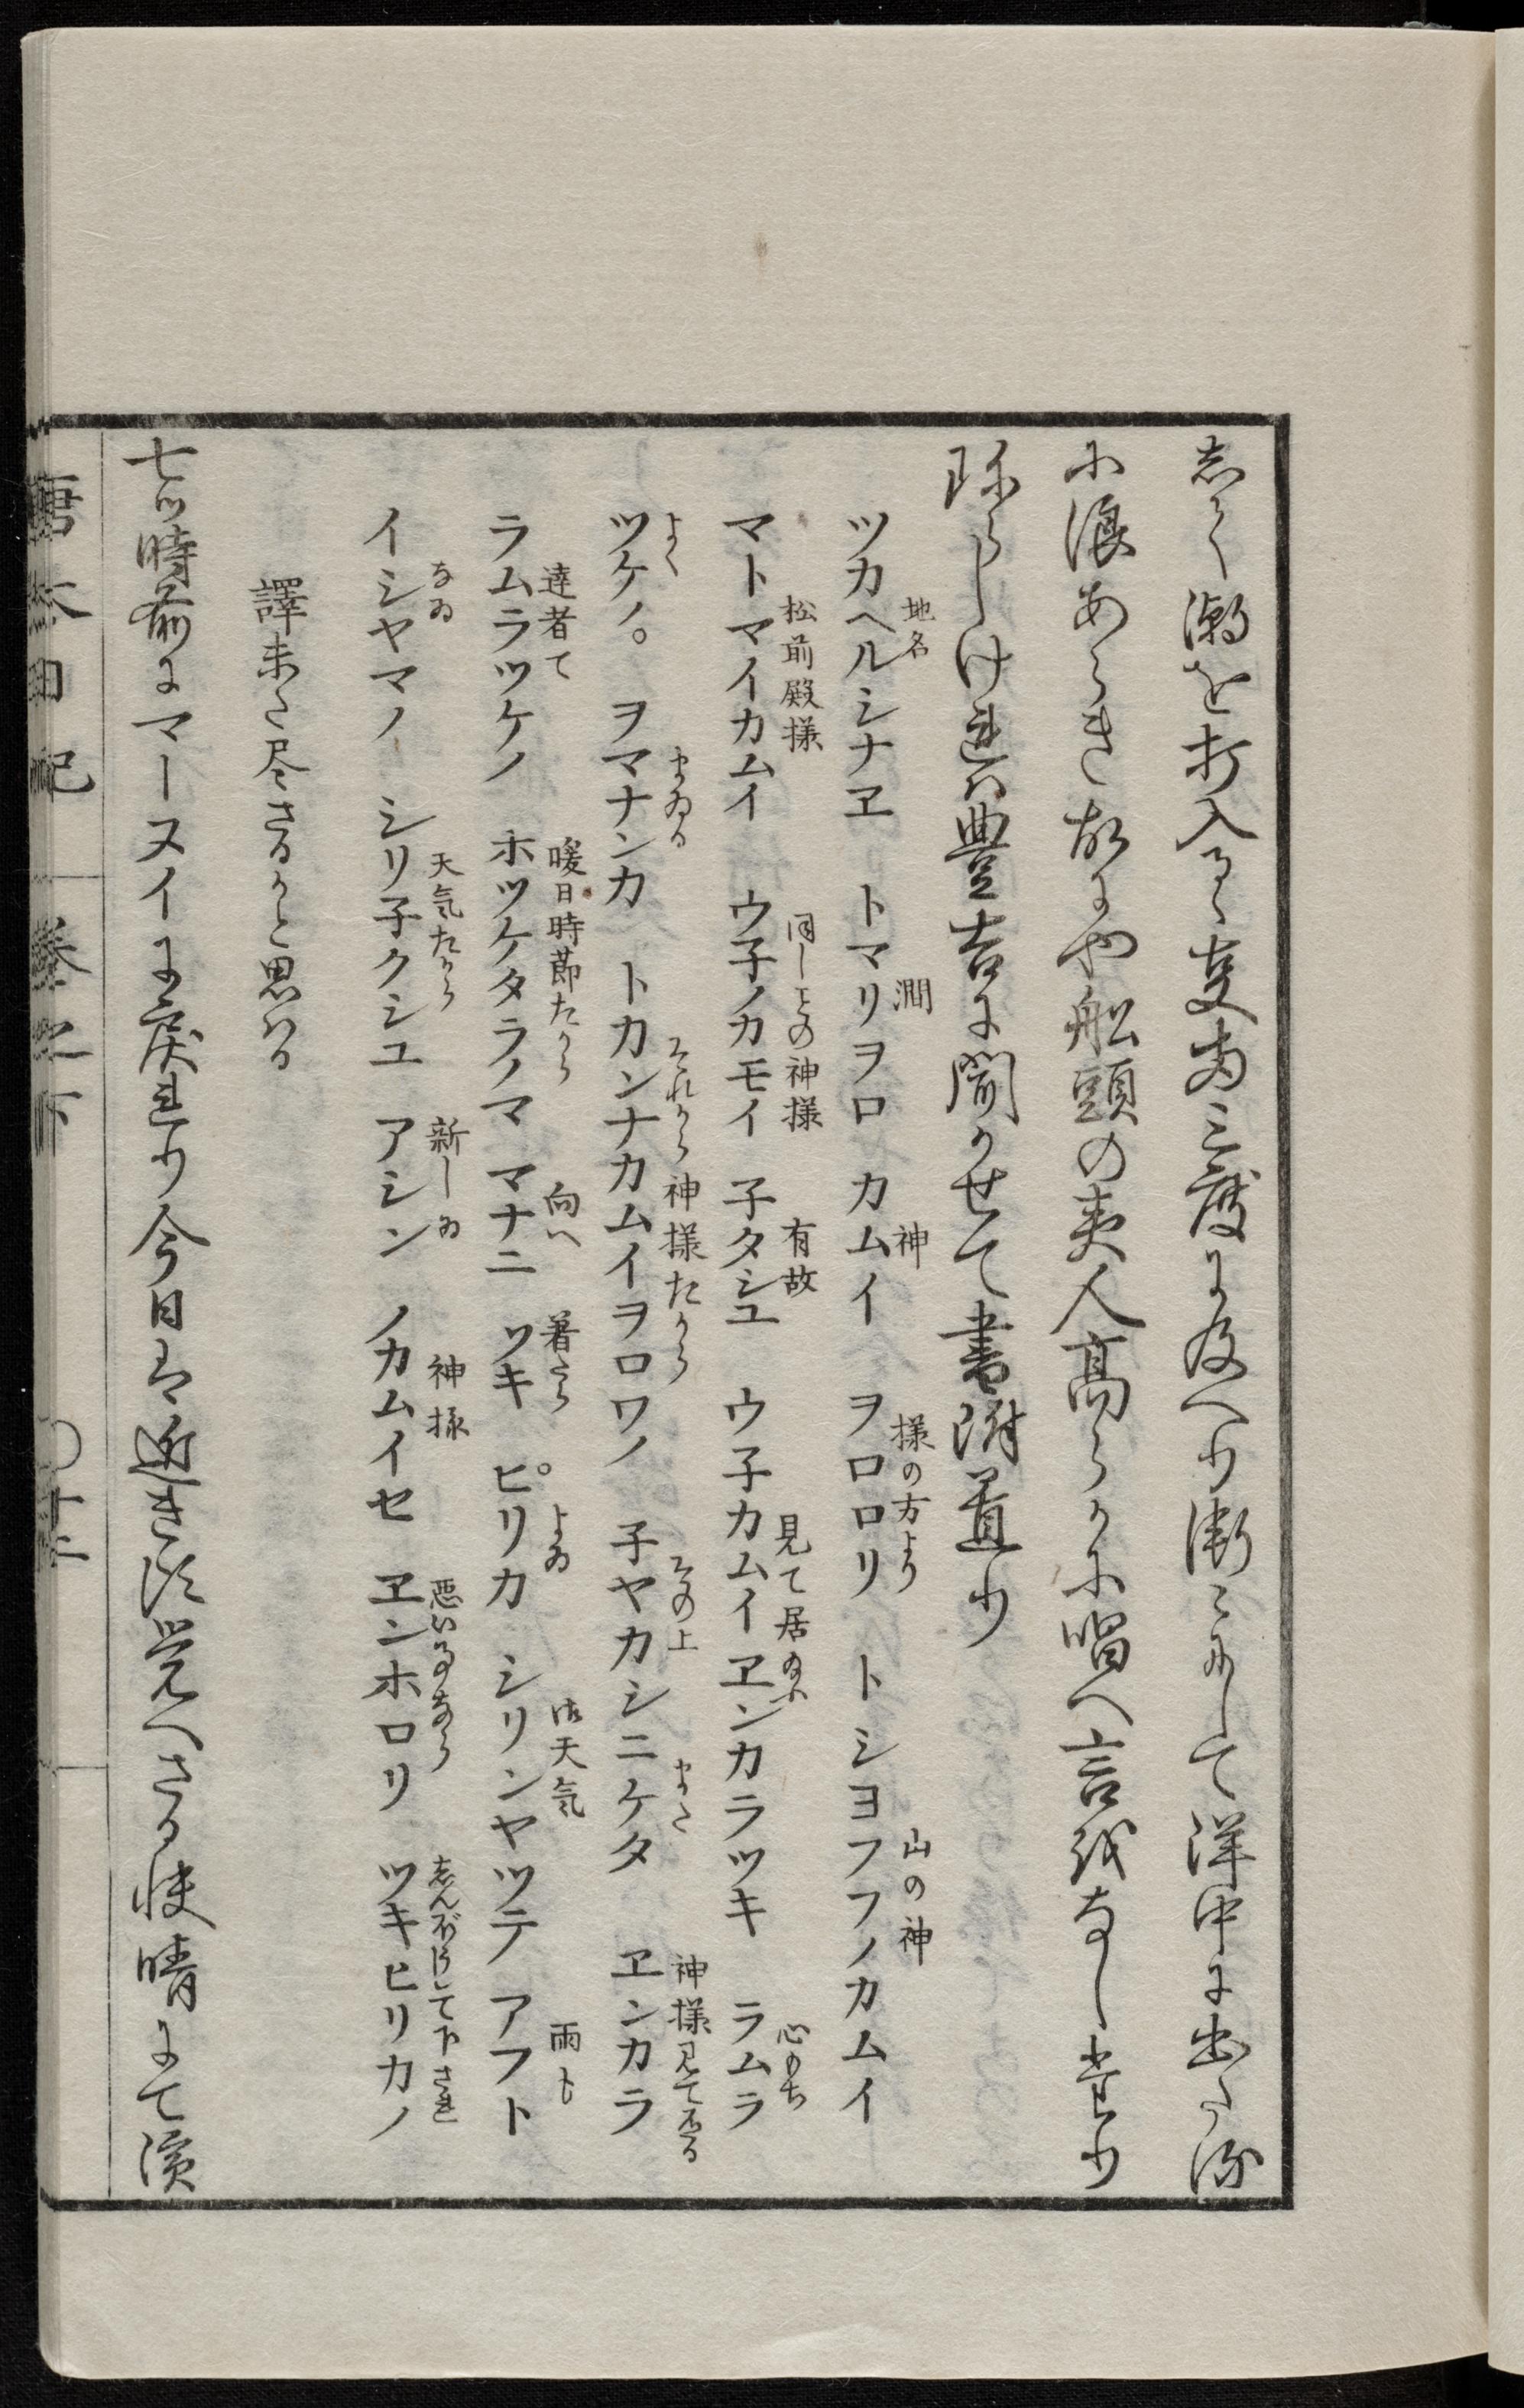 志く潮を打入るゝ事両三度に及へり漸々にして洋中に出たる
に浪あらき故にや船頭の夷人高らかに唱へ言をなしけり
珎らしけれは豊吉に聞かせて書附置り
ツカヘルシナヱ　トマリヲロ　カムイ　ヲロロリ　トシヨフフノカムイ
地名　澗　神　様の方より　山の神
マトマイカムイ　ウ子ノカモイ　子タシユ　ウ子カムイヱンカラツキ　ラムラ
松前殿様　同しとの神様　有故　見て居　心のち
ツケノ。　ヲマナンカ　トカンナカムイヲロワノ　子ヤカシニケタ　ヱンカラ
よく　まゐる　それから神様たから　その上　また　神様見て居る
ラムラツケノ　ホツケタラノマ　マナニ　ツキ　ピリカ　シリンヤツテ　アフト
達者て　暖日時節たから　向へ　着たら　よゐ　御天気　雨も
イシヤマノ　シリ子クシユ　アシン　ノカムイセ　ヱンホロリ　ツキヒリカノ
なゐ　天気たから　新しゐ　神様　悪い事なら　志んぼうして下され
譯未た尽さるかと思はる
七ツ時前にマーヌイに戻れり今日は近き頃覚へさる快晴にて濱
唐太日記　巻之下　〇十二